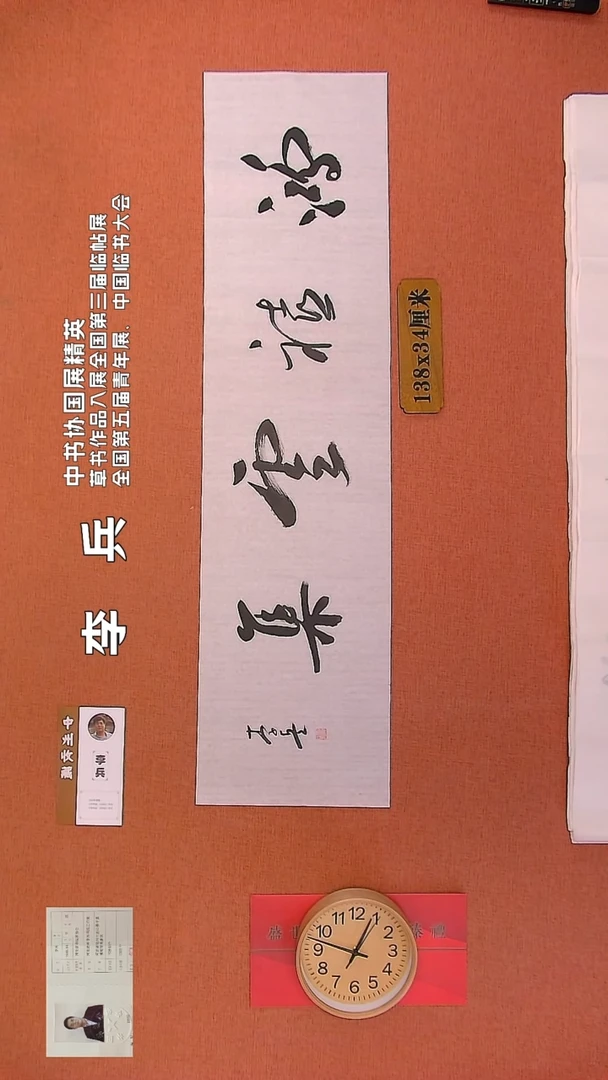 中书协国展精英
草书作品入展全国第三届临帖展
全国第五届青年展、中国临书大会
李 兵
鸿禧雲集
李兵
138x34厘米
12
1
2
3
4
5
6
7
8
9
10
11